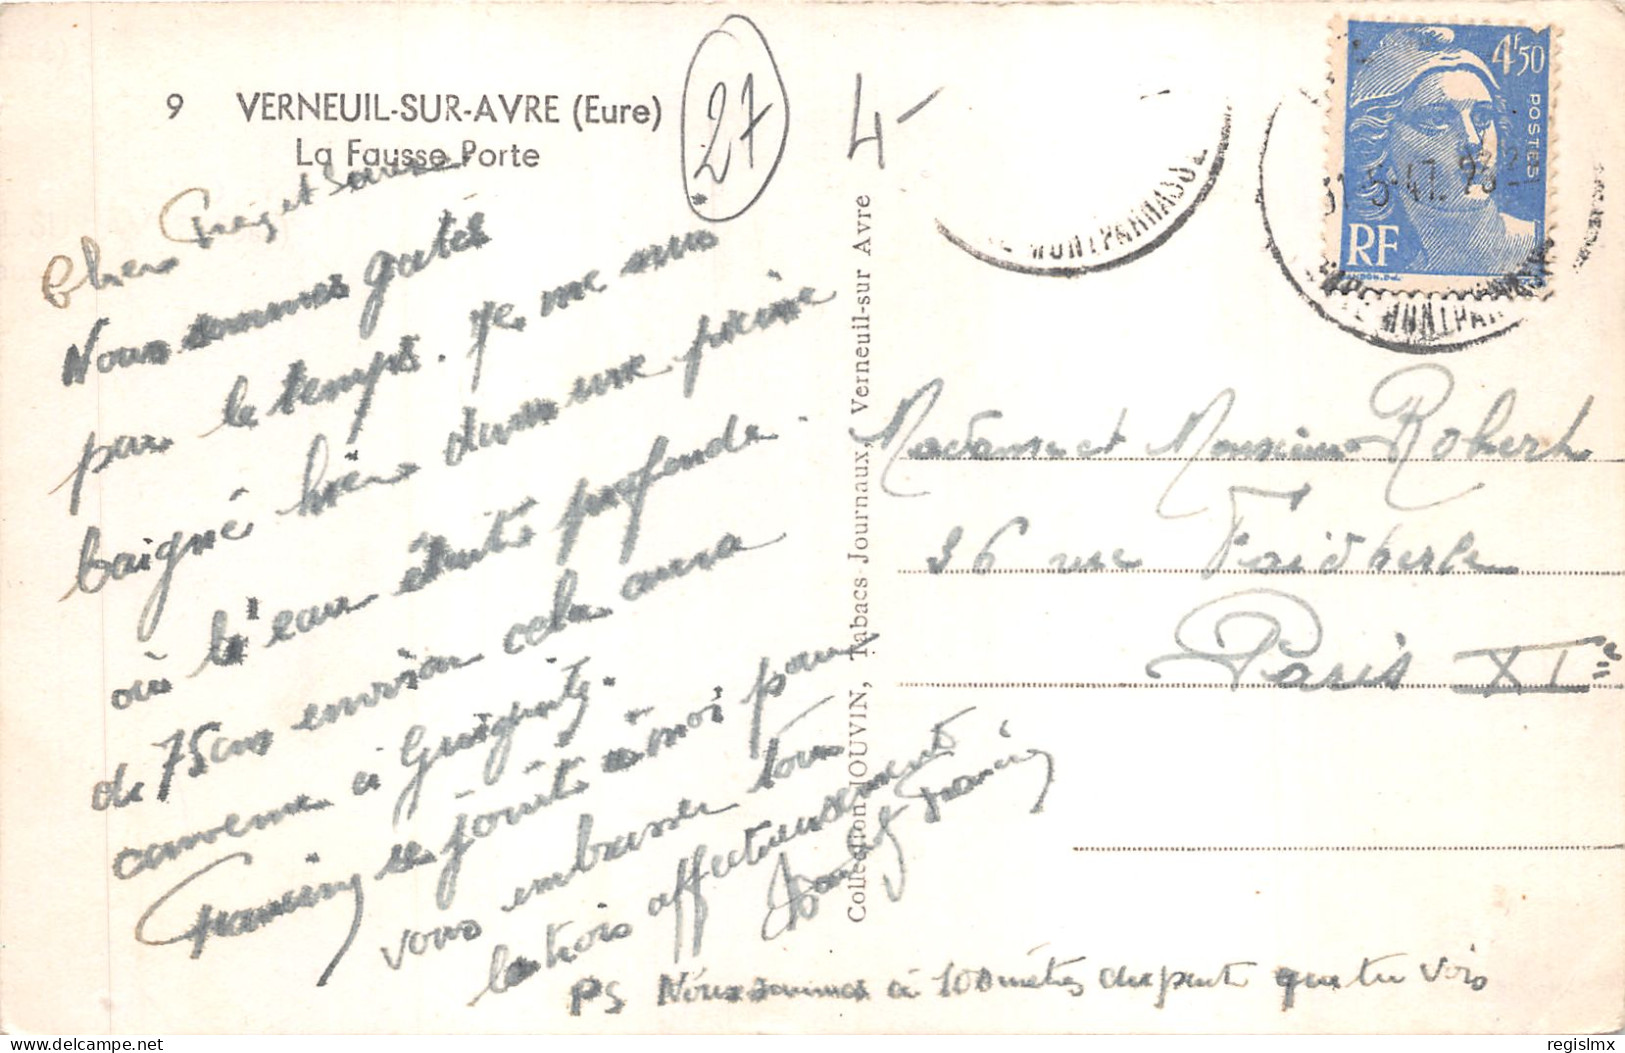 9 VERNEUIL-SUR-AVRE (Eure)
La Fausse Porte
27
4-
Chers
Nous sommes gatés
par le temps. Je me suis
baigné hier dans une piscine
où l'eau était profonde.
de 75cm environ cela aura
convenu à
Francin se joint à moi pour
vous embrasser tous
les trois affectueusement
et Francin
PS Nous sommes à 100 mètres du pont que tu vois
Collection JOUVIN, Tabacs Journaux, Verneuil-sur Avre
MONTPARNASSE
4F50
POSTES
RF
31 5 47
MONTPAR
Madame et Monsieur Robert
36 rue Faidherbe
Paris XIe
delcampe.net
regislmx